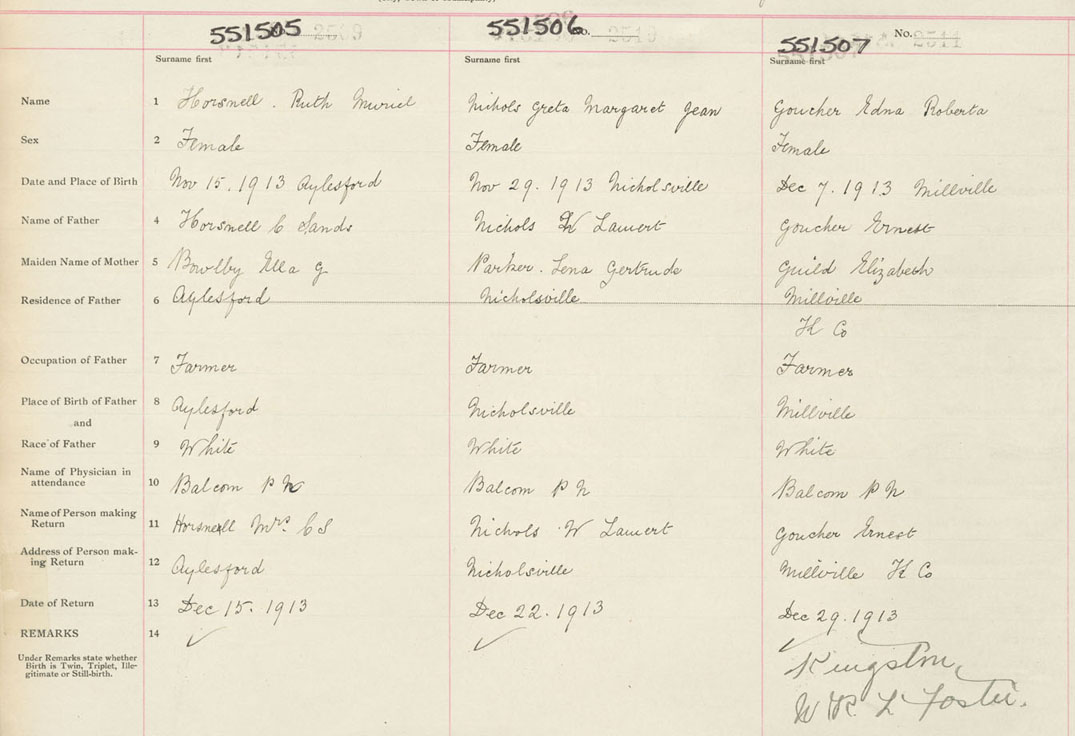 551505 551506 No. 551507 No. 2511
Surname first Surname first Surname first
Name 1 Horsnell. Ruth Muriel Nichols Greta Margaret Jean Goucher Edna Roberta
Sex 2 Female Female Female
Date and Place of Birth Nov 15. 1913 Aylesford Nov 29. 1913 Nicholsville Dec 7. 1913 Millville
Name of Father 4 Horsnell C Sands Nichols W Lamert Goucher Ernest
Maiden Name of Mother 5 Bowlby Ella G Parker. Lena Gertrude Guild Elizabeth
Residence of Father 6 Aylesford Nicholsville Millville
K Co
Occupation of Father 7 Farmer Farmer Farmer
Place of Birth of Father 8 Aylesford Nicholsville Millville
and
Race of Father 9 White White White
Name of Physician in
attendance 10 Balcom P N Balcom P N Balcom P N
Name of Person making
Return 11 Horsnell Mrs. C S Nichols W Lamert Goucher Ernest
Address of Person mak-
ing Return 12 Aylesford Nicholsville Millville K Co
Date of Return 13 Dec 15. 1913 Dec 22. 1913 Dec 29. 1913
REMARKS 14
Under Remarks state whether
Birth is Twin, Triplet, Ille-
gitimate or Still-birth.
Kingston,
L Foster.